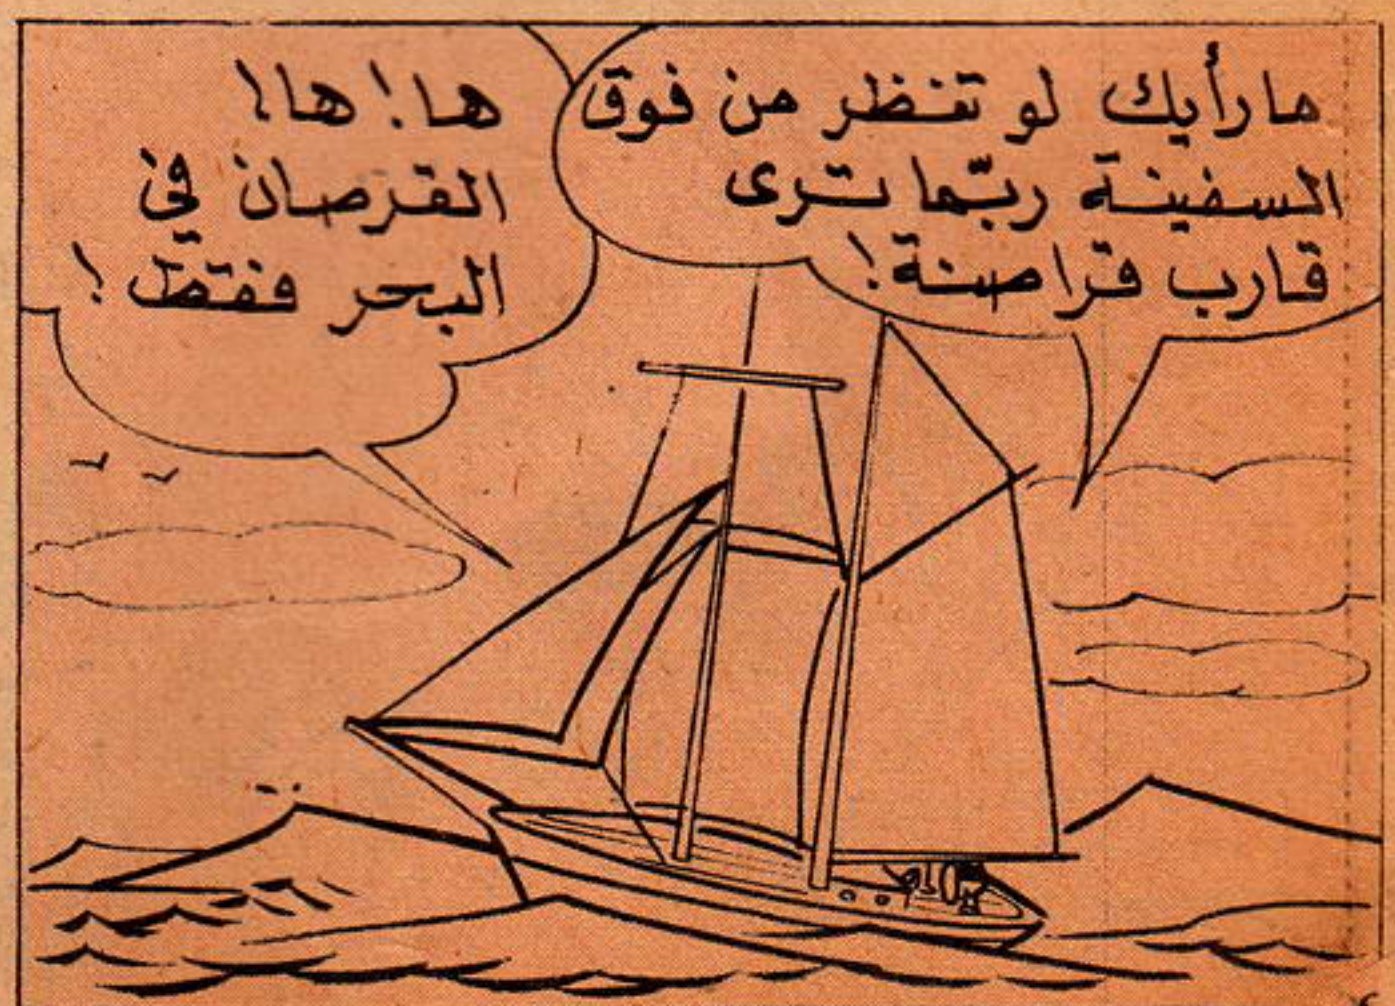 ما رأيك لو تنظر من فوق
السفينة ربّما ترى
قارب قراصنة!
ها! ها!
القرصان في
البحر فقط!